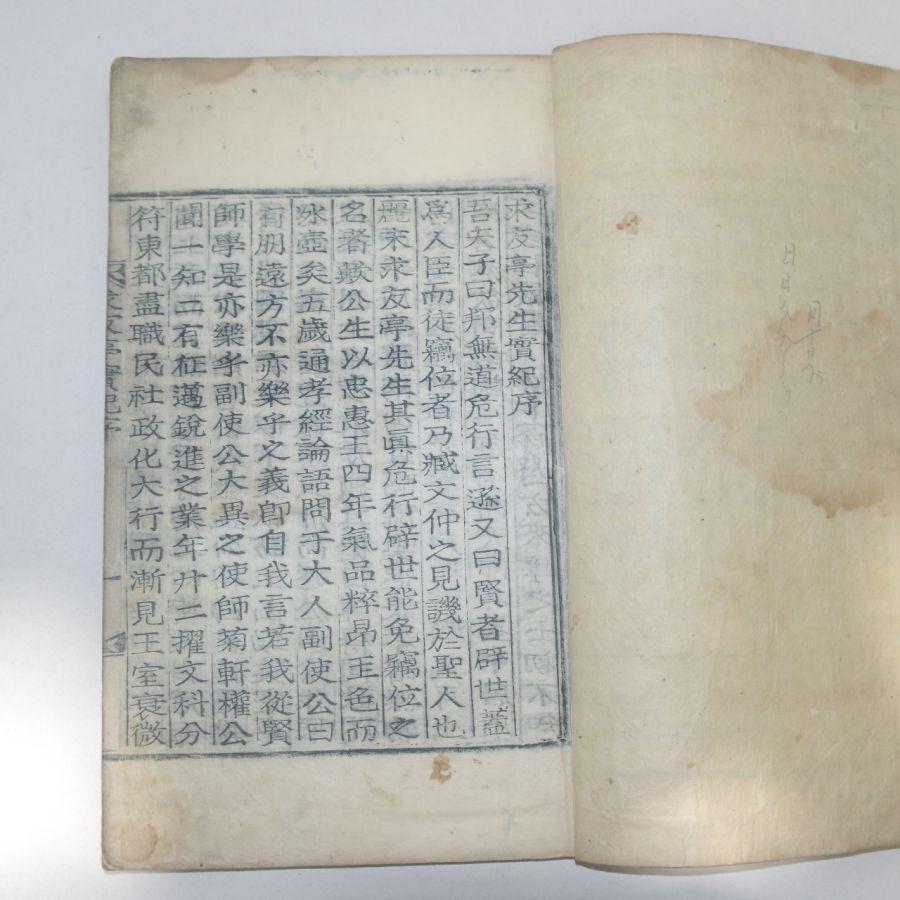 求友亭先生實紀序
吾夫子曰邦無道危行言遜又曰賢者辟世蓋
爲人臣而徒竊位者乃臧文仲之見譏於聖人也
麗末求友亭先生其眞危行辟世能免竊位之
名者歟公生以忠惠王四年氣品粹昂玉色而
氷壺矣五歲通孝經論語問于大人副使公曰
有朋遠方不亦樂乎之義卽自我言若我從賢
師學是亦樂乎副使公大異之使師菊軒權公
聞一知二有征邁銳進之業年廾二擢文科分
符東都盡職民社政化大行而漸見王室衰微
求友亭實紀序
一